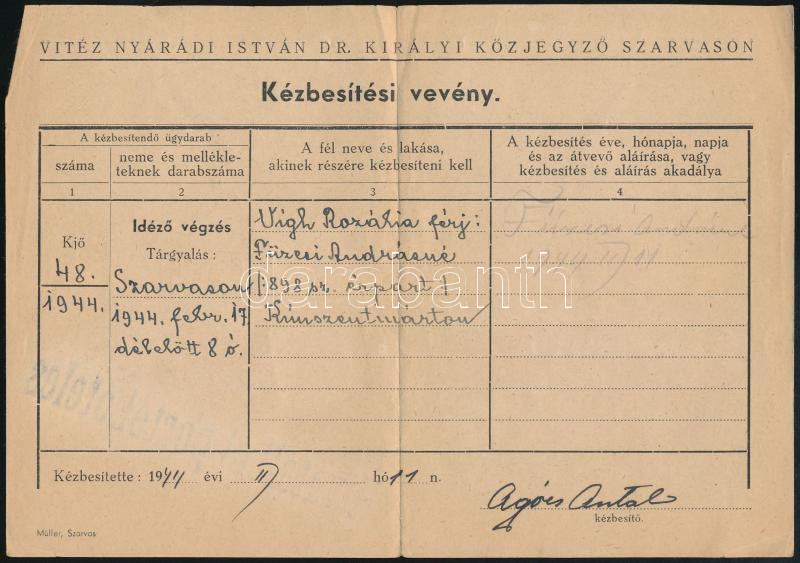 VITÉZ NYÁRÁDI ISTVÁN DR. KIRÁLYI KÖZJEGYZŐ SZARVASON
Kézbesítési vevény.
A kézbesítendő ügydarab:
száma
neme és mellékle-
teknek darabszáma
A fél neve és lakása,
akinek részére kézbesíteni kell
A kézbesítés éve, hónapja, napja
és az átvevő aláírása, vagy
kézbesítés és aláírás akadálya
1
2
3
4
Kjő
48.
1944.
Idéző végzés
Tárgyalás:
Szarvason
1944. febr. 17.
délelőtt 8 ó.
Vigh Rozália férj:
Füzesi Andrásné
/:898 sz. érpart/
Kúnszentmárton
1944 II 11
darabanth
Kézbesítette: 1944 évi II hó 11 n.
Antal
kézbesítő.
Müller, Szarvas